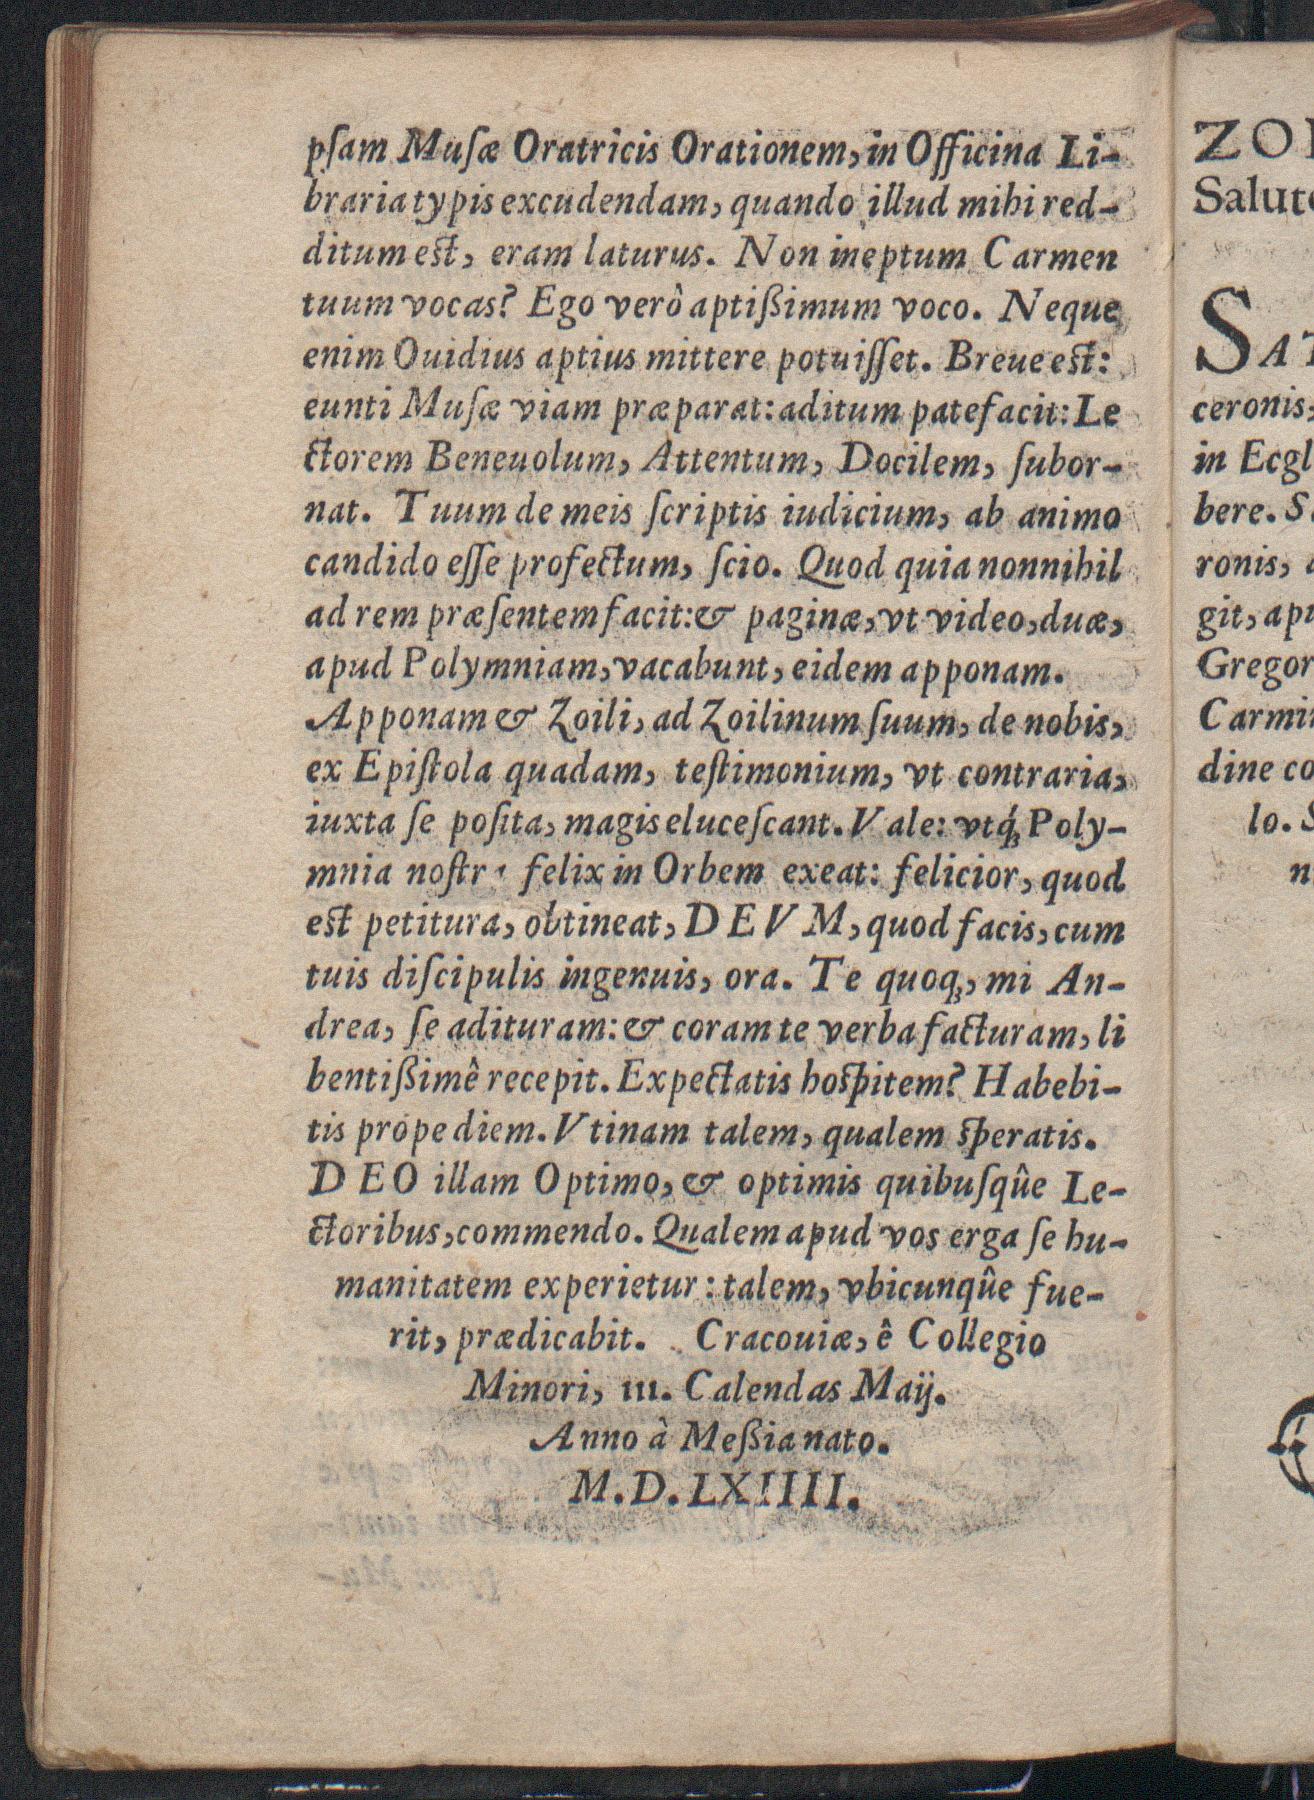 pſam Muſæ Oratricis Orationem, in Officina Li-
braria typis excudendam, quando illud mihi red-
ditum est, eram laturus. Non ineptum Carmen
tuum vocas? Ego verò aptißimum voco. Neque
enim Ouidius aptius mittere potuiſſet. Breue est:
eunti Muſæ viam præparat: aditum patefacit: Le
ctorem Beneuolum, Attentum, Docilem, ſubor-
nat. Tuum de meis ſcriptis iudicium, ab animo
candido eſſe profectum, ſcio. Quod quia nonnihil
ad rem præſentem facit: & paginæ, vt video, duæ,
apud Polymniam, vacabunt, eidem apponam.
Apponam & Zoili, ad Zoilinum ſuum, de nobis,
ex Epiſtola quadam, teſtimonium, vt contraria,
iuxta ſe poſita, magis eluceſcant. Vale: vtq́ꝫ Poly-
mnia noſtr felix in Orbem exeat: felicior, quod
est petitura, obtineat, DEVM, quod facis, cum
tuis diſcipulis ingenuis, ora. Te quoqꝫ, mi An-
drea, ſe adituram: & coram te verba facturam, li
bentißimê recepit. Expectatis hoſpitem? Habebi-
tis prope diem. Vtinam talem, qualem ſperatis.
DEO illam Optimo, & optimis quibuſqûe Le-
ctoribus, commendo. Qualem apud vos erga ſe hu-
manitatem experietur: talem, vbicunqûe fue-
rit, prædicabit. Cracouiæ, ê Collegio
Minori, III. Calendas Maij.
Anno à Meßia nato.
M.D.LXIIII.
ZO
Salut
SA
ceronis,
in Ecgl
bere. S
ronis,
git, ap
Gregor
Carmi
dine co
lo. S
n